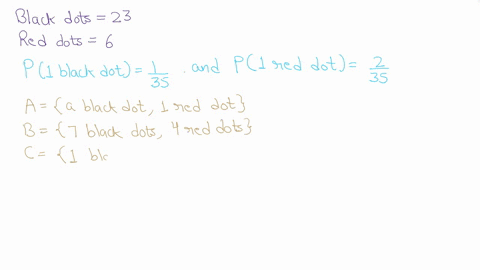 Black dots = 23
Red dots = 6
P(1 black dot) = 1/35 . and P(1 red dot) = 2/35
A = {a black dot, 1 red dot}
B = {7 black dots, 4 red dots}
C = {1 blc